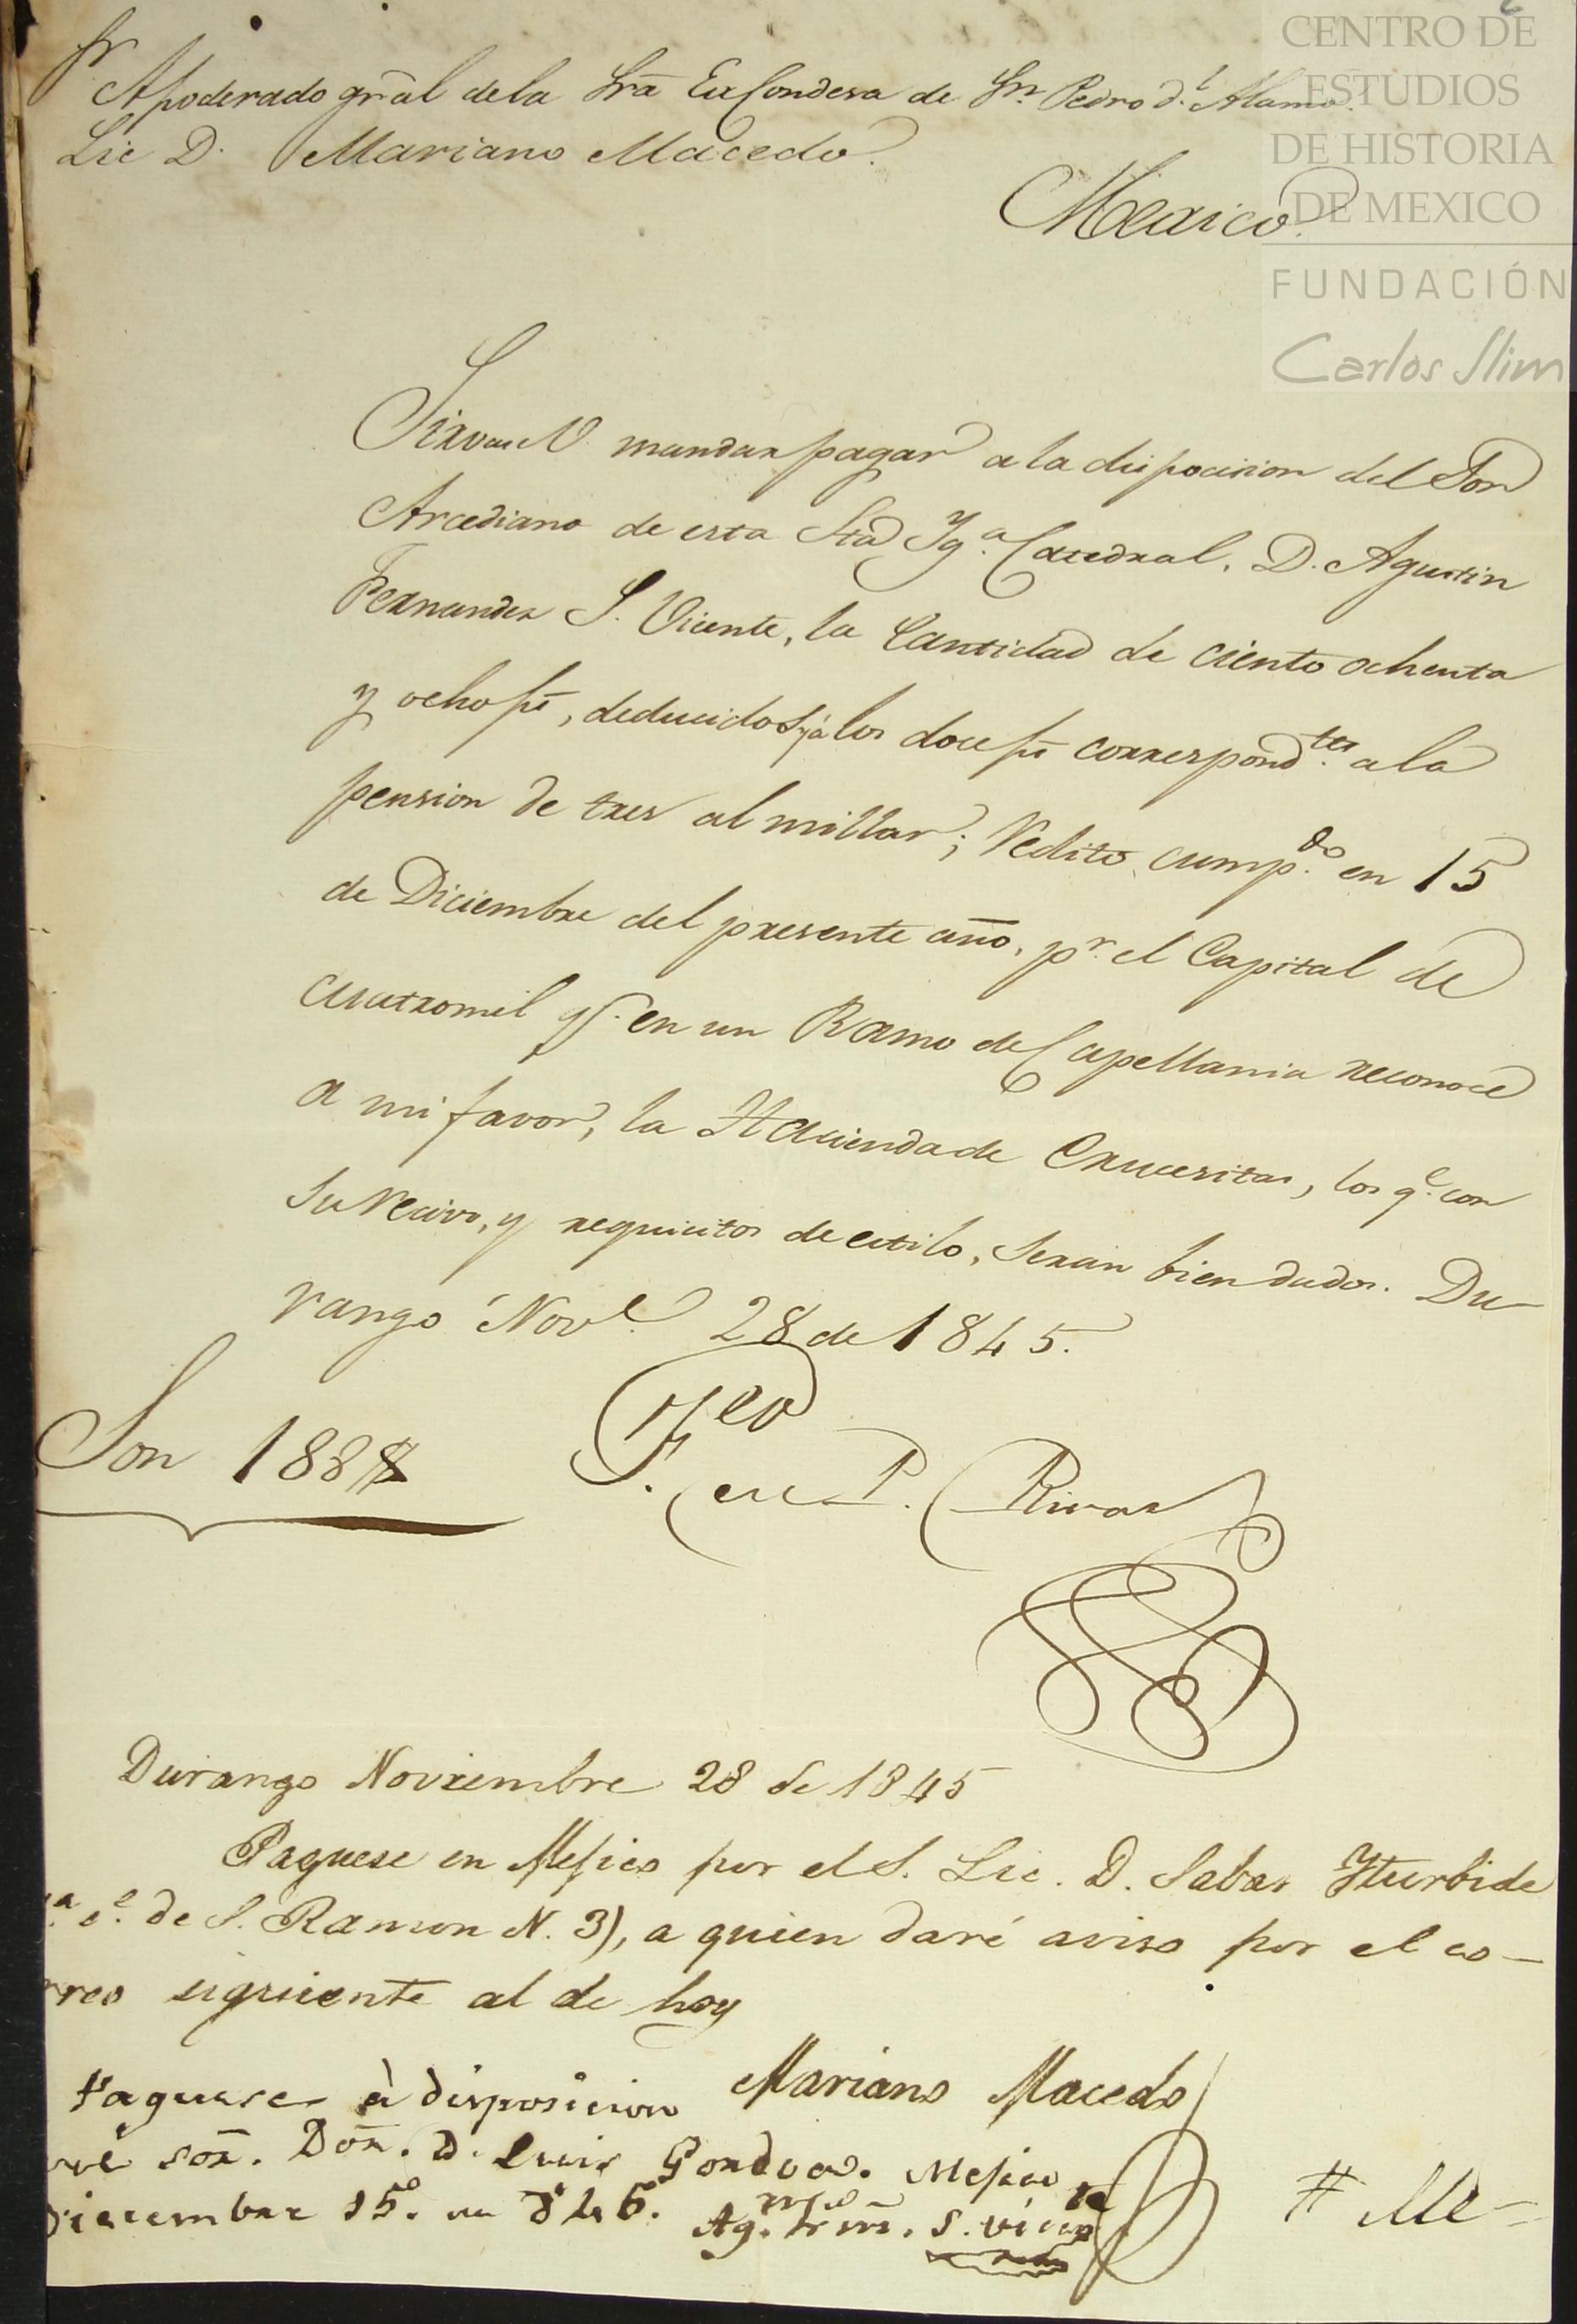 Sr
Apoderado gral dela Sra ExCondesa de Sn. Pedro dl. Alamo.
Lic D. Mariano Macedo.
Mexico.
CENTRO DE
ESTUDIOS
DE HISTORIA
DE MEXICO
FUNDACIÓN
Carlos Slim
Sirvase V. mandar pagar a la dispocision del Sor
Arcediano de esta Sta Yga. Catedral, D. Agustin
Fernandez S. Vicente, la Cantidad de ciento ochenta
y ocho ps, deducidos ya los doce ps correspondtes. a la
pension de tres al millar; Redito cumpdo. en 15
de Diciembre del presente año, pr. el Capital de
cuatromil ps. en un Ramo de Capellania reconoce
a mi favor, la Hacienda de Crucesitas, los qe. con
su recivo, y requicitos de estilo, seran bien dados. Du-
rango Nove. 28 de 1845.
Son 188$
F. P. Rivas
Durango Noviembre 28 de 1845
Paguese en Mejico por el S. Lic. D. Sabas Yturbide
de S. Ramon N. 3), a quien daré aviso por el co-
rreo siguiente al de hoy
Mariano Macedo
Paguese à disposicion
sor. Dor. D. Luis Gordoa. Mejico
Diciembre 15. de 845.
Ag. Frnz. S. Vicente
# Me-